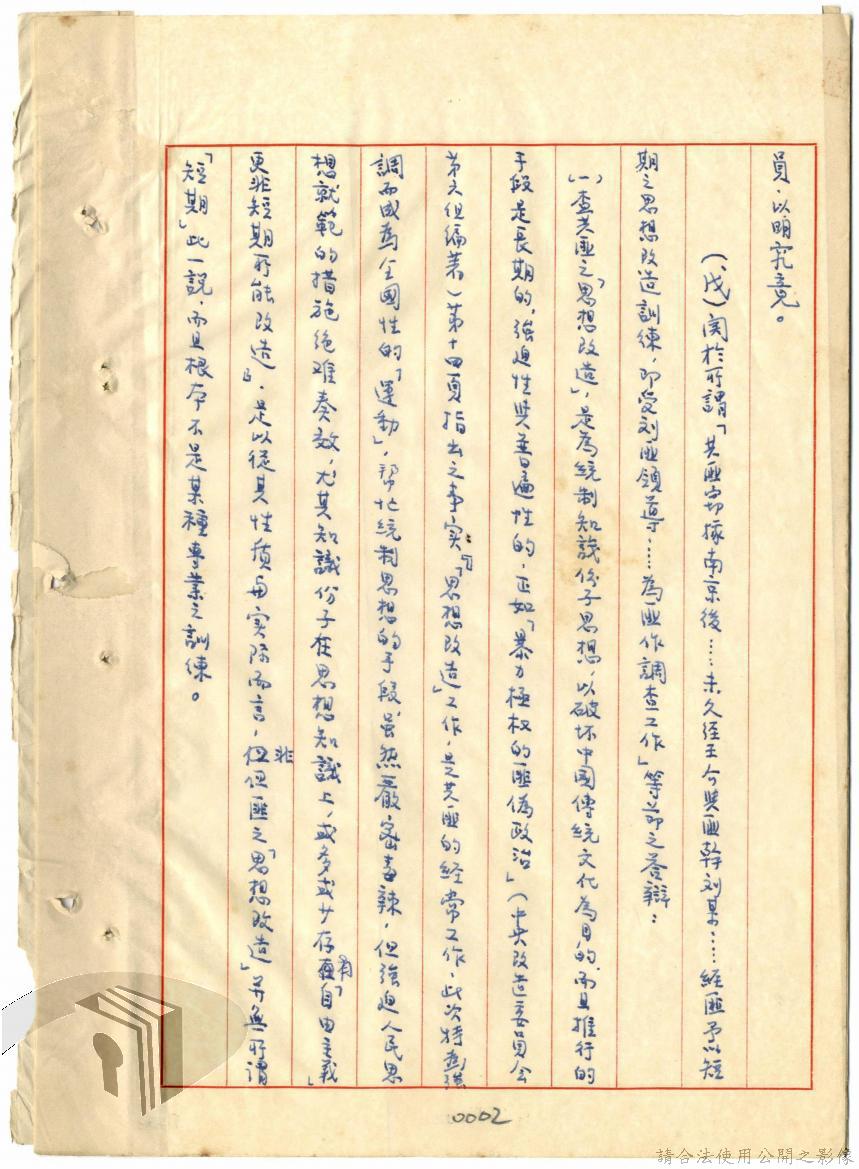 員，以明究竟。
（戊）関於所謂「共匪窃據南京後……未久径至今與匪幹刘某……經匪予以短
期之思想改造訓練，即受刘匪領導……為匪作調查工作」等節之答辯：
（一）查共匪之「思想改造」，是為統制知識份子思想，以破坏中國傳統文化為目的，而且推行的
手段是長期的，強迫性與普遍性的，正如「暴力極权的匪偽政治」（中央改造委員会
第六组编著）第十四頁指出之事实：『「思想改造」工作，是共匪的經常工作，此次特為強
調而成為全國性的「運動」，帮忙統制思想的手段虽然嚴密毒辣，但強迫人民思
想就範的措施绝难奏效，尤其知識份子在思想知識上，或多或少存有「自由主義」
更非短期所能改造』，是以從其性質與实际而言，非但匪之「思想改造」并無所謂
「短期」此一說，而且根本不是某種專業之訓練。
0002
請合法使用公開之影像